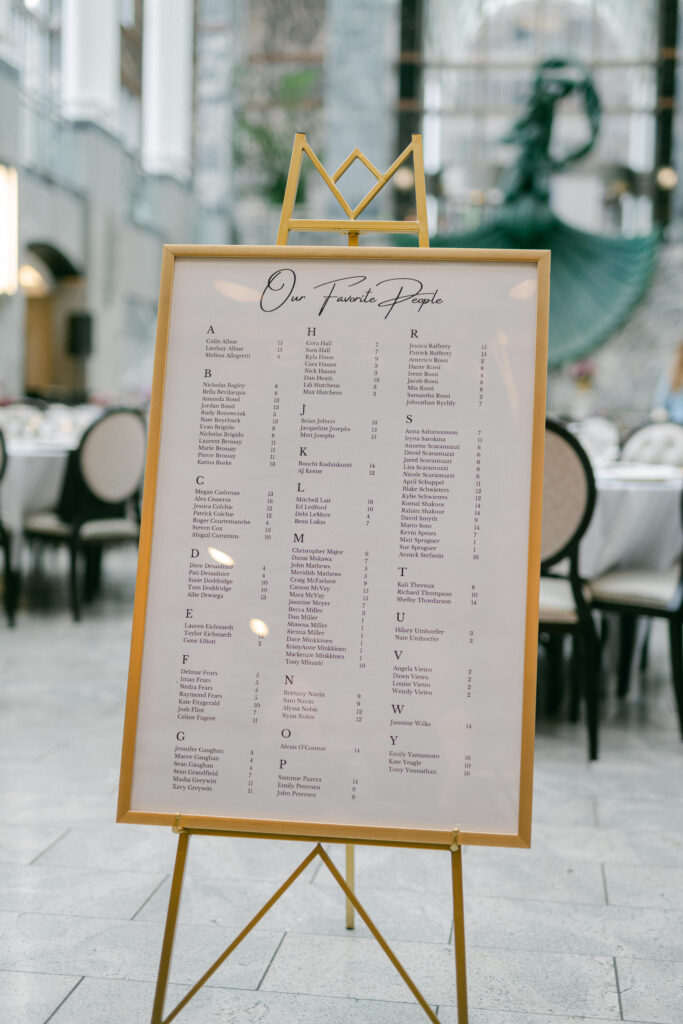 Our Favorite People
A
Colin Albue 13
Lindsay Albue 13
Melissa Allegretti 9
B
Nicholas Bagley 8
Bella Bevilacqua 8
Amanda Bond 13
Jordan Bond 13
Rudy Borowczak 3
Nate Boychuck 13
Evan Brigido 8
Nicholas Brigido 8
Laurent Brossay 11
Marie Brossay 11
Pierre Brossay 11
Kaiina Burke 13
C
Megan Cashman 13
Alex Cisneros 16
Jessica Colchie 12
Patrick Colchie 12
Roger Courtemanche 4
Steven Cox 13
Abigail Cummins 10
D
Dave Desaulnier 4
Pati Desaulnier 4
Susie Doddridge 10
Tom Doddridge 10
Allie Dewiega 13
E
Lauren Eichstaedt
Taylor Eichstaedt
Gene Elliott 2
F
Delmar Fears 5
Iman Fears 5
Nedra Fears 5
Raymond Fears 5
Kate Fitzgerald 10
Josh Flint 7
Celine Fugere 11
G
Jennifer Gaughan 4
Maeve Gaughan 4
Sean Gaughan 4
Sean Grandfield 7
Masha Greywitt 11
Xavy Greywitt 11
H
Cora Hall 7
Sam Hall 7
Kyla Hase 9
Cara Hauam 3
Nick Hauam 3
Dan Heath 13
Lili Hutchens 3
Max Hutchens 3
J
Brian Jefson 13
Jacqueline Josephs 15
Matt Josephs 15
K
Boochi Kashinkunti 14
AJ Keene 14
L
Mitchell Lair 16
Ed Ledford 10
Debi LeMere 4
Beau Lukas 7
M
Christopher Major 6
Danai Makawa 7
John Mathews 5
Meridith Mathews 5
Craig McFarlane 9
Carson McVay 15
Mara McVay 15
Jasmine Meyer 7
Becca Miller 3
Dan Miller 1
Shawna Miller 1
Sienna Miller 1
Dave Minkkinen 1
KristyAnne Minkkinen 1
Mackenzie Minkkinen 1
Tony Mlinaric 10
N
Brittany Navin 9
Sam Navin 9
Alyssa Nobis 12
Ryan Nobis 12
O
Alexis O'Connor 14
P
Sammie Pazera 14
Emily Petersen 9
John Petersen 9
R
Jessica Rafferty 15
Patrick Rafferty 15
Americo Rossi 2
Dante Rossi 8
Irene Rossi 4
Jacob Rossi 8
Mia Rossi 8
Samantha Rossi 2
Johnathan Rychly 7
S
Anna Salomonsson 7
Iryna Sarokina 11
Annette Scaramuzzi 6
David Scaramuzzi 6
Jared Scaramuzzi 6
Lisa Scaramuzzi 6
Nicole Scaramuzzi 6
April Schuppel 11
Blake Schwieters 12
Kylie Schwieters 12
Komal Shakoor 14
Rahim Shakoor 14
David Smyth 9
Mario Soto 14
Kevin Spears 7
Matt Spraguer 1
Sue Spraguer 1
Annick Stefanin 16
T
Kali Theroux 8
Richard Thompson 10
Shelby Thordarson 14
U
Hilary Umhoefer 3
Nate Umhoefer 3
V
Angela Vietro 2
Dawn Vietro 2
Louise Vietro 2
Wendy Vietro 2
W
Jasmine Wilks 14
Y
Emily Yamamoto 16
Kate Yeagle 10
Tony Younathan 16